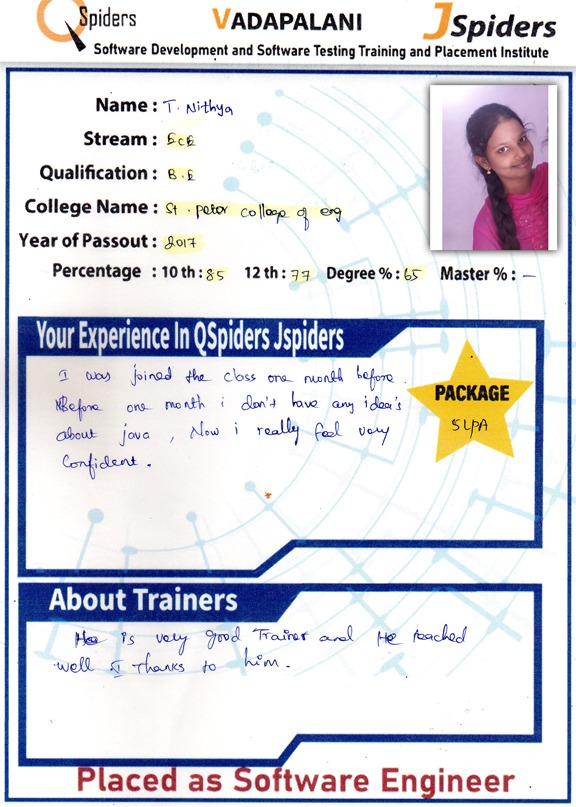 QSpiders VADAPALANI JSpiders
Software Development and Software Testing Training and Placement Institute
Name : T. Nithya
Stream : ECE
Qualification : B.E
College Name : St. peter college of eng
Year of Passout : 2017
Percentage : 10 th : 85 12 th : 77 Degree % : 65 Master % : –
Your Experience In QSpiders Jspiders
I was joined the class one month before.
Before one month i don't have any idea's
about java, Now i really feel very
Confident.
PACKAGE
5 LPA
About Trainers
He is very good Trainer and He teached
well I Thanks to him.
Placed as Software Engineer